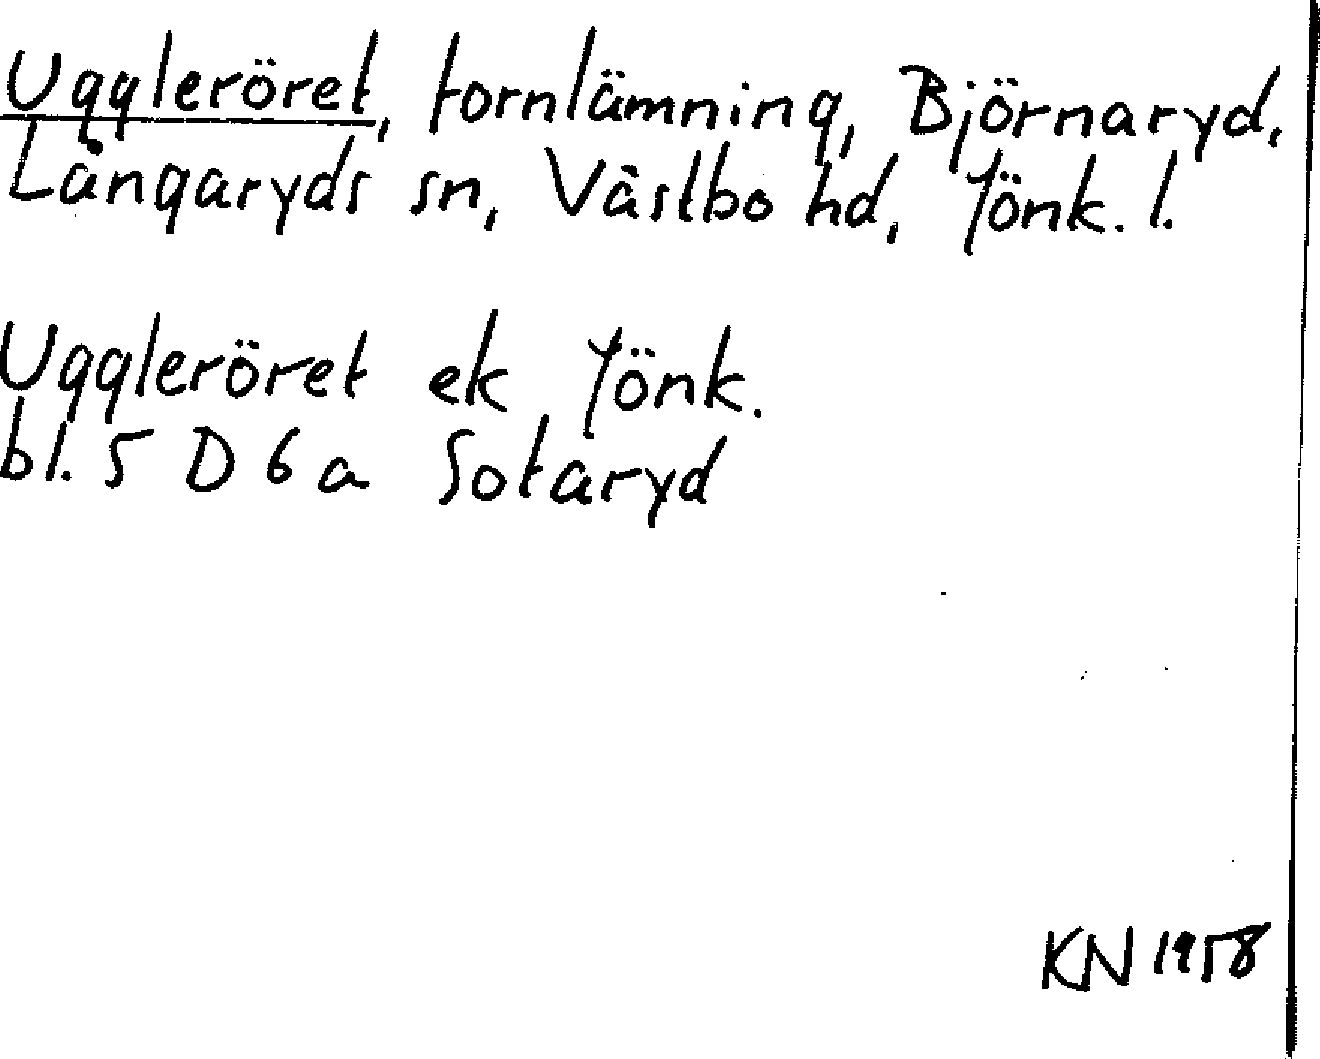 Uggleröret, fornlämning, Björnaryd,
Långaryds sn, Västbo hd, Jönk. l.
Uggleröret ek Jönk.
bl. 5 D 6 a Sotaryd
KN 1958